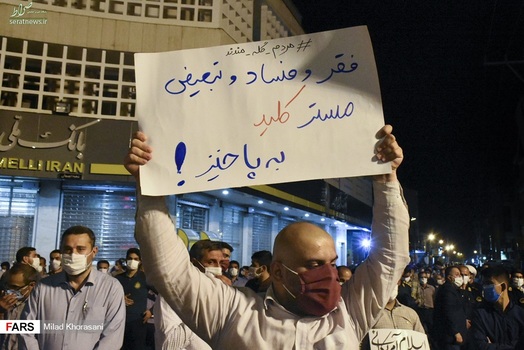 صراط
seratnews.ir
#مردم_گله_مندند
فقر و فساد و تبعیض
مستر کلید
به پا خیز!
بانک ملی
MELLI IRAN
اسلام آمد
FARS
Milad Khorasani